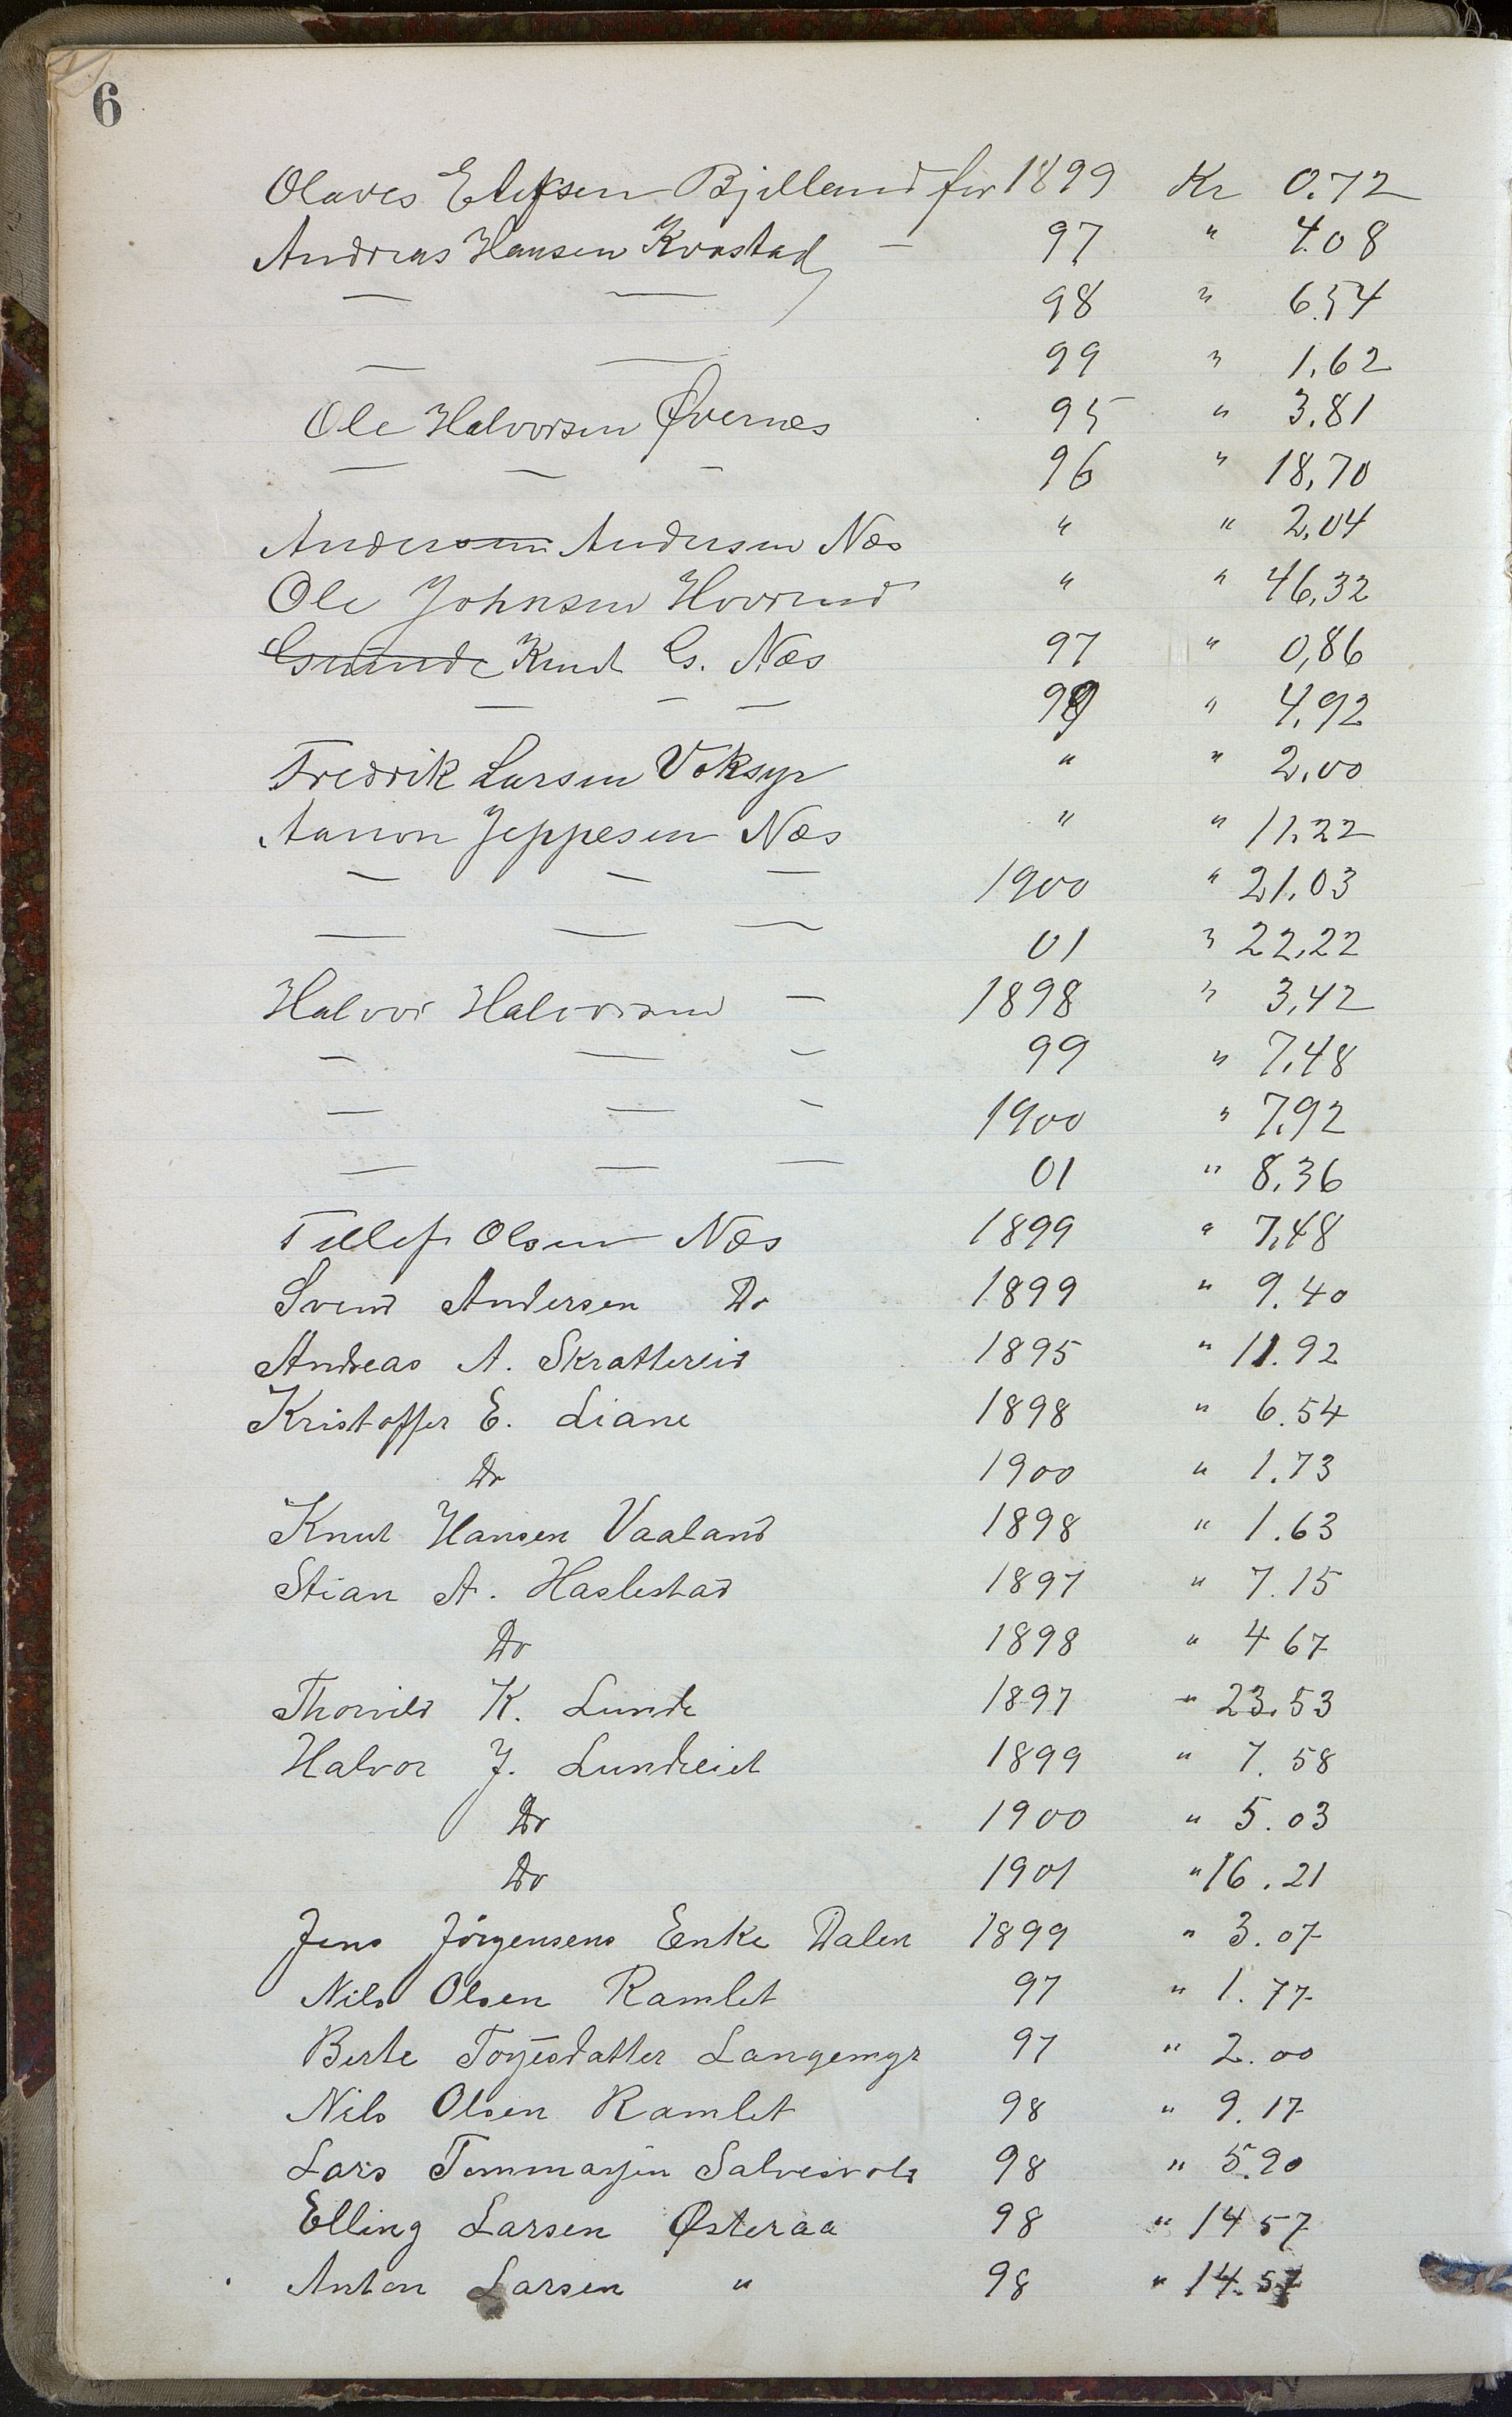 6
Olaves Elefsen Bjelland for 1899 Kr 0.72
Andreas Hansen Kvastad — 97 " 4.08
— — 98 " 6.54
— — 99 " 1.62
Ole Halvorsen Øvernes 95 " 3.81
— — — 96 " 18,70
Andersen Andersen Næs " " 2,04
Ole Johnsen Hovrud " " 46,32
Gunde Knut G. Næs 97 " 0,86
— — — 99 " 4,92
Fredrik Larsen Voksyr " " 2,00
Aanon Jeppesen Næs " " 11.22
— — — 1900 " 21.03
— — — 01 " 22,22
Halvor Halvorsen — 1898 " 3,42
— — — 99 " 7,48
— — — 1900 " 7,92
— — — 01 " 8,36
Tellef Olsen Næs 1899 " 7,48
Svend Andersen Do 1899 " 9.40
Andreas A. Skrattereid 1895 " 11.92
Kristoffer E. Liane 1898 " 6.54
Do 1900 " 1.73
Knut Hansen Vaaland 1898 " 1.63
Stian A. Haslestad 1897 " 7.15
Do 1898 " 4 67
Thorvild K. Lunde 1897 " 23.53
Halvor J. Lundreid 1899 " 7.58
Do 1900 " 5.03
Do 1901 " 16.21
Jens Jörgensens Enke Dalen 1899 " 3.07
Nils Olsen Ramlet 97 " 1.77
Berte Tojesdatter Langemyr 97 " 2.00
Nils Olsen Ramlet 98 " 9.17
Lars Tommasjen Salvesvold 98 " 5.90
Elling Larsen Østeraa 98 " 14 57
Anton Larsen " 98 " 14.57